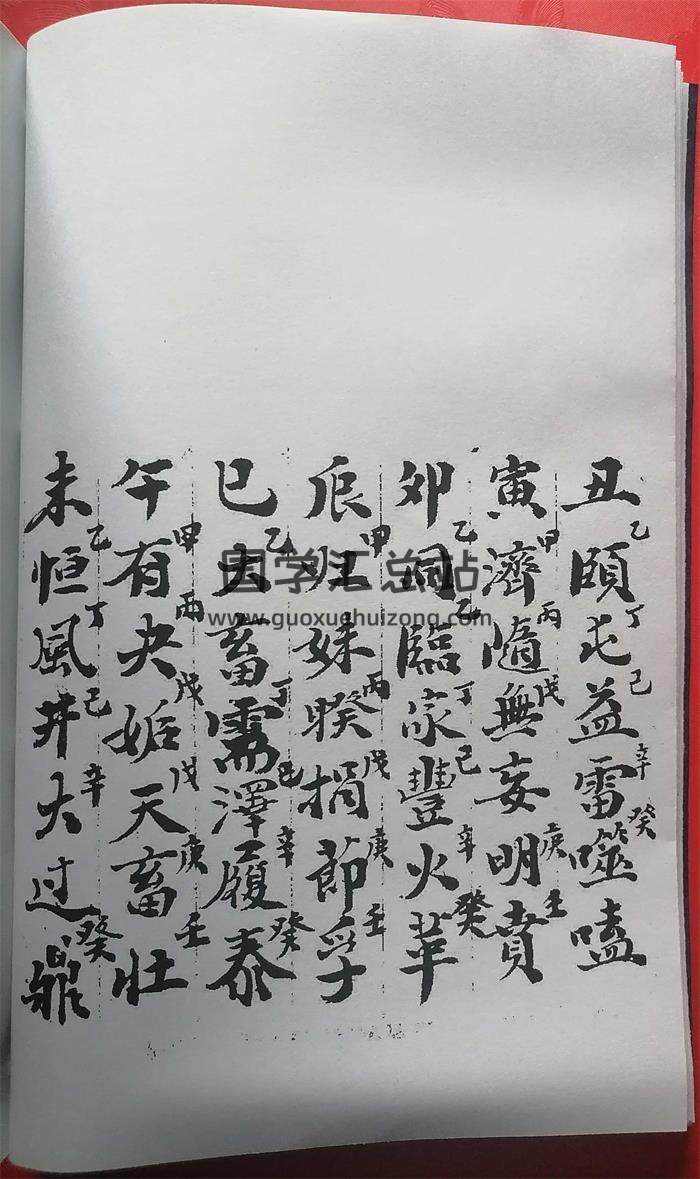 丑乙頤丁屯己益辛雷癸噬嗑
寅甲濟丙隨戊無妄庚明壬賁
卯乙同乙臨丁家己豐辛火癸革
辰甲归妹丙睽戊損庚節壬孚
巳乙大畜丁需己澤辛履癸泰
午甲有丙夬戊姤戊天庚畜壬壯
未乙恒丁風己井辛大过癸鼎
国学汇总站
www.guoxuehuizong.com